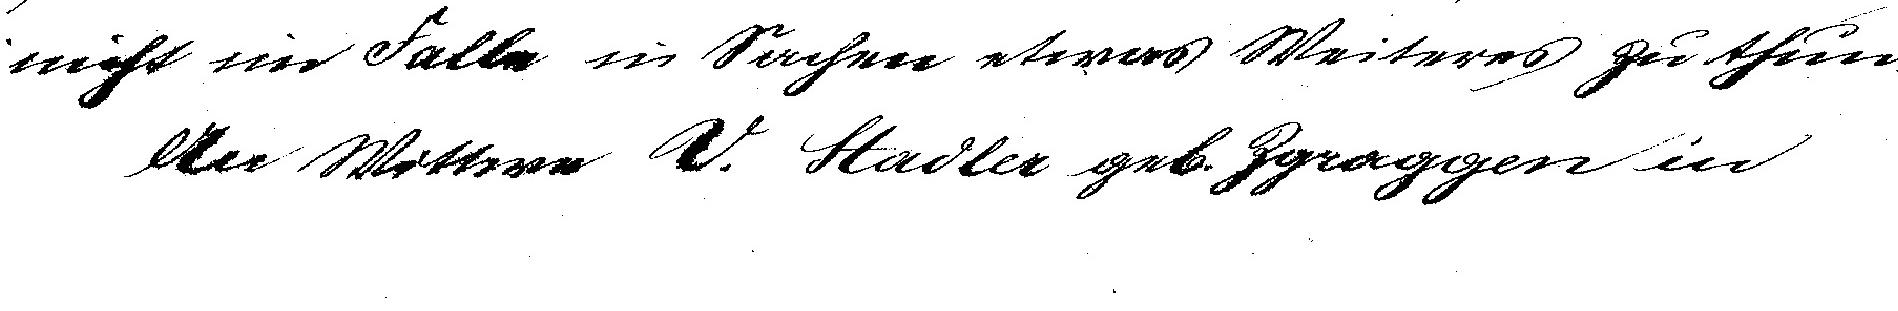 nicht im Falle in Sachen etwas Weiteres zu thun
An Wittwe V. Stadler geb. Zgraggen in